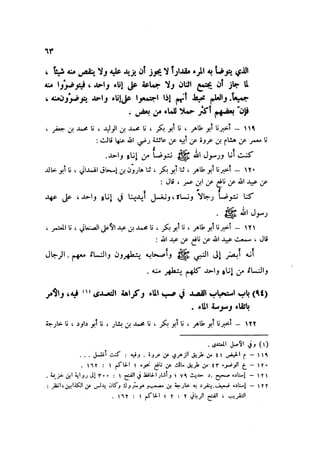 ٦٣
الذي يتوضأ به المرء مقداراً لا يجوز أن يزيد عليه ولا ينقص منه شيئاً ،
لما جاز أن يجتمع اثنان ولا جماعة على إناء واحد ، فيتوضؤوا منه
جميعاً. والعلم محيط أنهم إذا اجتمعوا على إناء واحد يتوضؤون منه ،
فإن بعضهم أكثر حملاً للماء من بعض .
١١٩ – أخبرنا أبو طاهر ، نا أبو بكر ، نا محمد بن الوليد ، نا محمد بن جعفر ،
نا معمر عن هشام بن عروة عن أبيه عن عائشة رضي الله عنها قالت :
كنت أنا ورسول الله ﷺ نتوضأ من إناء واحد.
١٢٠ – أخبرنا أبو طاهر ، ثنا أبو بكر ، ثنا هارون بن إسحاق الهمداني ، نا أبو خالد
عن عبيد الله عن نافع عن ابن عمر ، قال :
كنا نتوضأ رجالاً ونساءً ، ونغسل أيدينا في إناء واحد ، على عهد
رسول الله ﷺ .
١٢١ – أخبرنا أبو طاهر ، نا أبو بكر ، نا محمد بن عبد الأعلى الصنعاني ، نا المعتمر ،
قال ، سمعت عبيد الله عن نافع عن عبد الله :
أنه أبصر إلى النبي ﷺ وأصحابه يتطهرون والنساء معهم . الرجال
والنساء من إناء واحد كلهم يتطهر منه .
(٩٤) باب استحباب القصد في صب الماء وكراهة التعدي (١) فيه ، والأمر
باتقاء وسوسة الماء .
١٢٢ – أخبرنا أبو طاهر ، نا أبو بكر ، نا محمد بن بشار ، نا أبو داود ، نا خارجة
(١) وفي الأصل المعتدي .
١١٩ – م الحيض ٤١ من طريق الزهري عن عروة . وفيه : كنت أغتسل ...
١٢٠ – خ الوضوء ٤٣ من طريق مالك عن نافع نحوه ؛ الحاكم ١ : ١٦٢ .
١٢١ – إسناده صحيح . د حديث ٧٩ ؛ وأشار الحافظ في الفتح ١ : ٣٠٠ إلى رواية ابن خزيمة .
١٢٢ – إسناده ضعيف . ينفرد به خارجة بن مصعب وهو متروك وكان يدلس عن الكذابين ، انظر :
التقريب ، الفتح الرباني ٢ : ٢ ؛ الحاكم ١ : ١٦٢ .